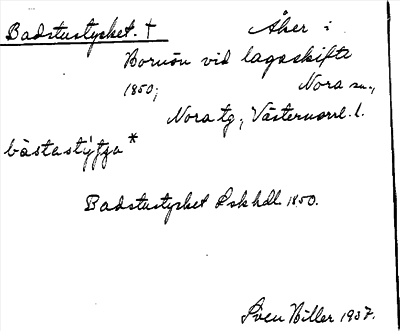 Badstustycket. † Åker i
Bornön vid lagaskifte
1850; Nora sn.,
Nora tg, Västernorrl. l.
bàstastýʈʈa*
Badstustycket Lskhdl. 1850.
Sven Hiller 1937.